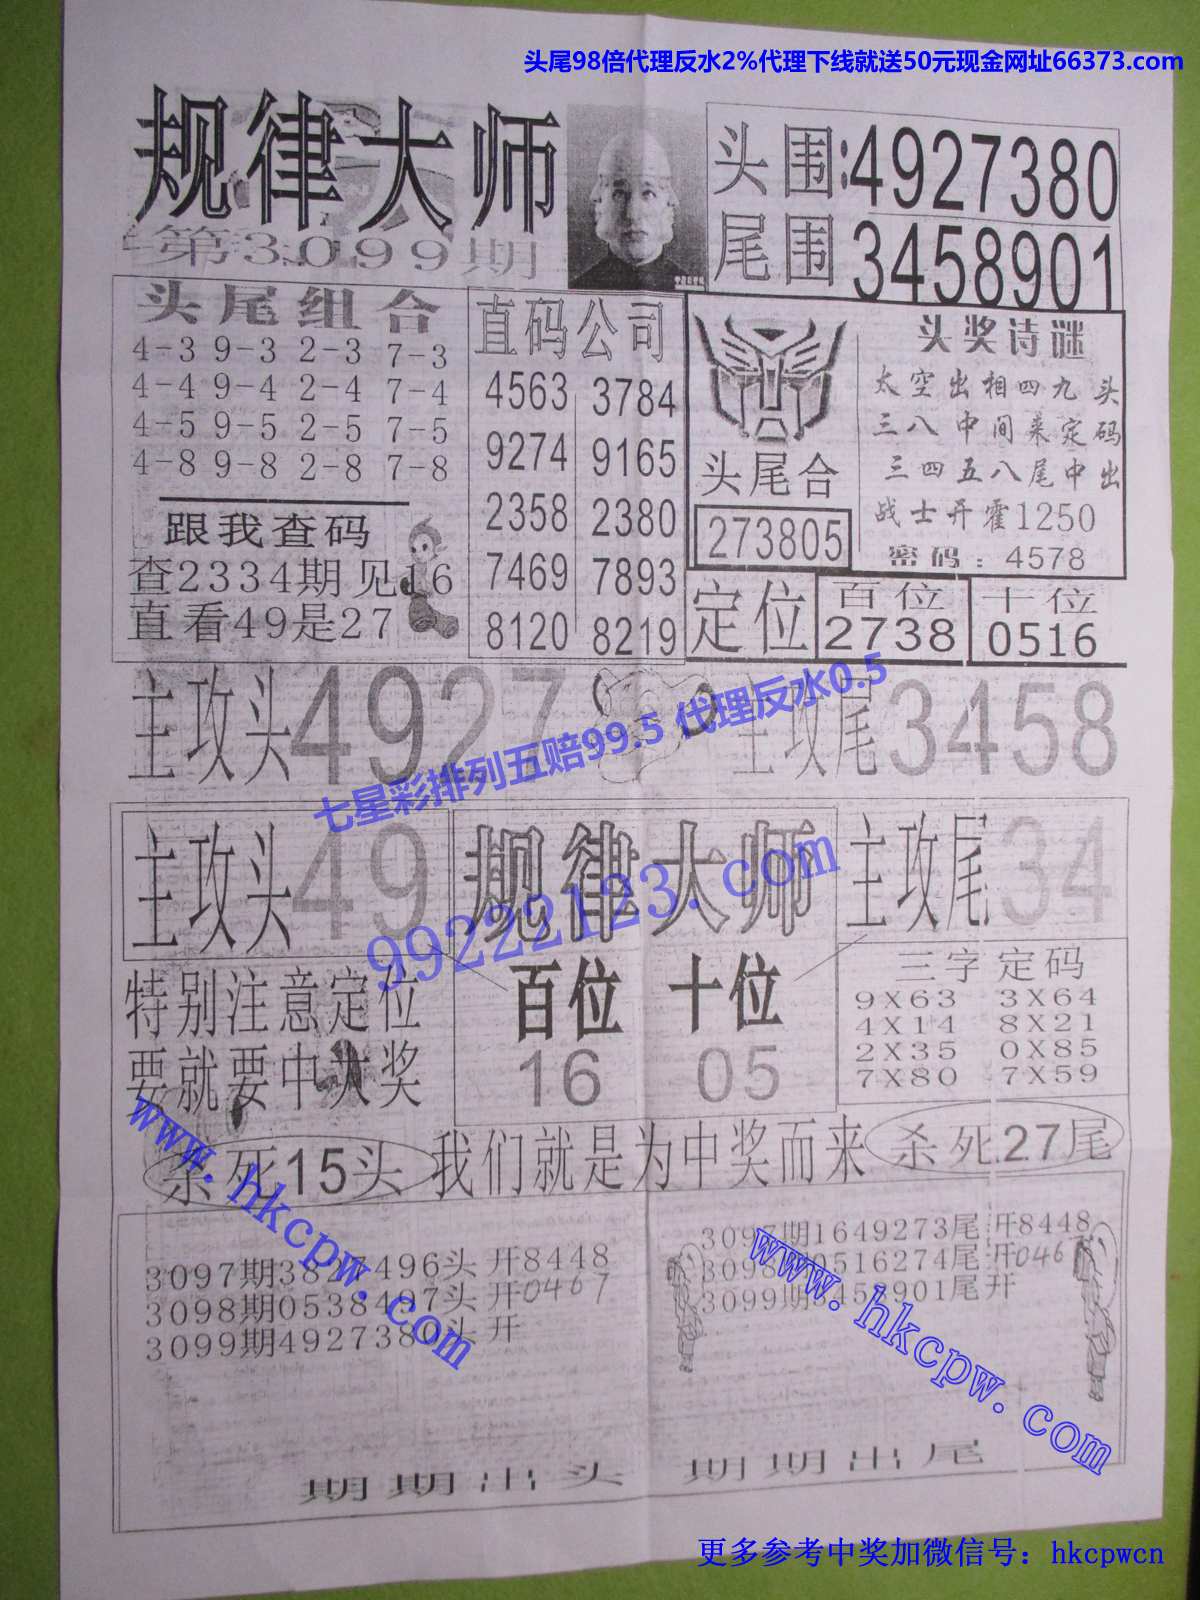 头尾98倍代理反水2%代理下线就送50元现金网址66373.com
规律大师
第3099期
头围:4927380
尾围 3458901
头尾组合
4-3 9-3 2-3 7-3
4-4 9-4 2-4 7-4
4-5 9-5 2-5 7-5
4-8 9-8 2-8 7-8
跟我查码
查2334期见16
直看49是27
直码公司
4563 3784
9274 9165
2358 2380
7469 7893
8120 8219
头尾合
273805
头奖诗谜
太空出相四九头
三八中间来定码
三四五八尾中出
战士开霍1250
密码:4578
定位
百位
2738
十位
0516
主攻头4927
主攻尾3458
七星彩排列五赔99.5 代理反水0.5
99222123.com
主攻头49
规律大师
主攻尾34
百位 十位
16 05
特别注意定位
要就要中大奖
三字定码
9X63 3X64
4X14 8X21
2X35 0X85
7X80 7X59
杀死15头
我们就是为中奖而来
杀死27尾
www.hkcpw.com
3097期3827496头 开8448
3098期0538497头 开0467
3099期4927380头 开
3097期1649273尾 开8448
3098期0516274尾 开046
3099期3458901尾 开
www.hkcpw.com
期期出头 期期出尾
更多参考中奖加微信号：hkcpwcn